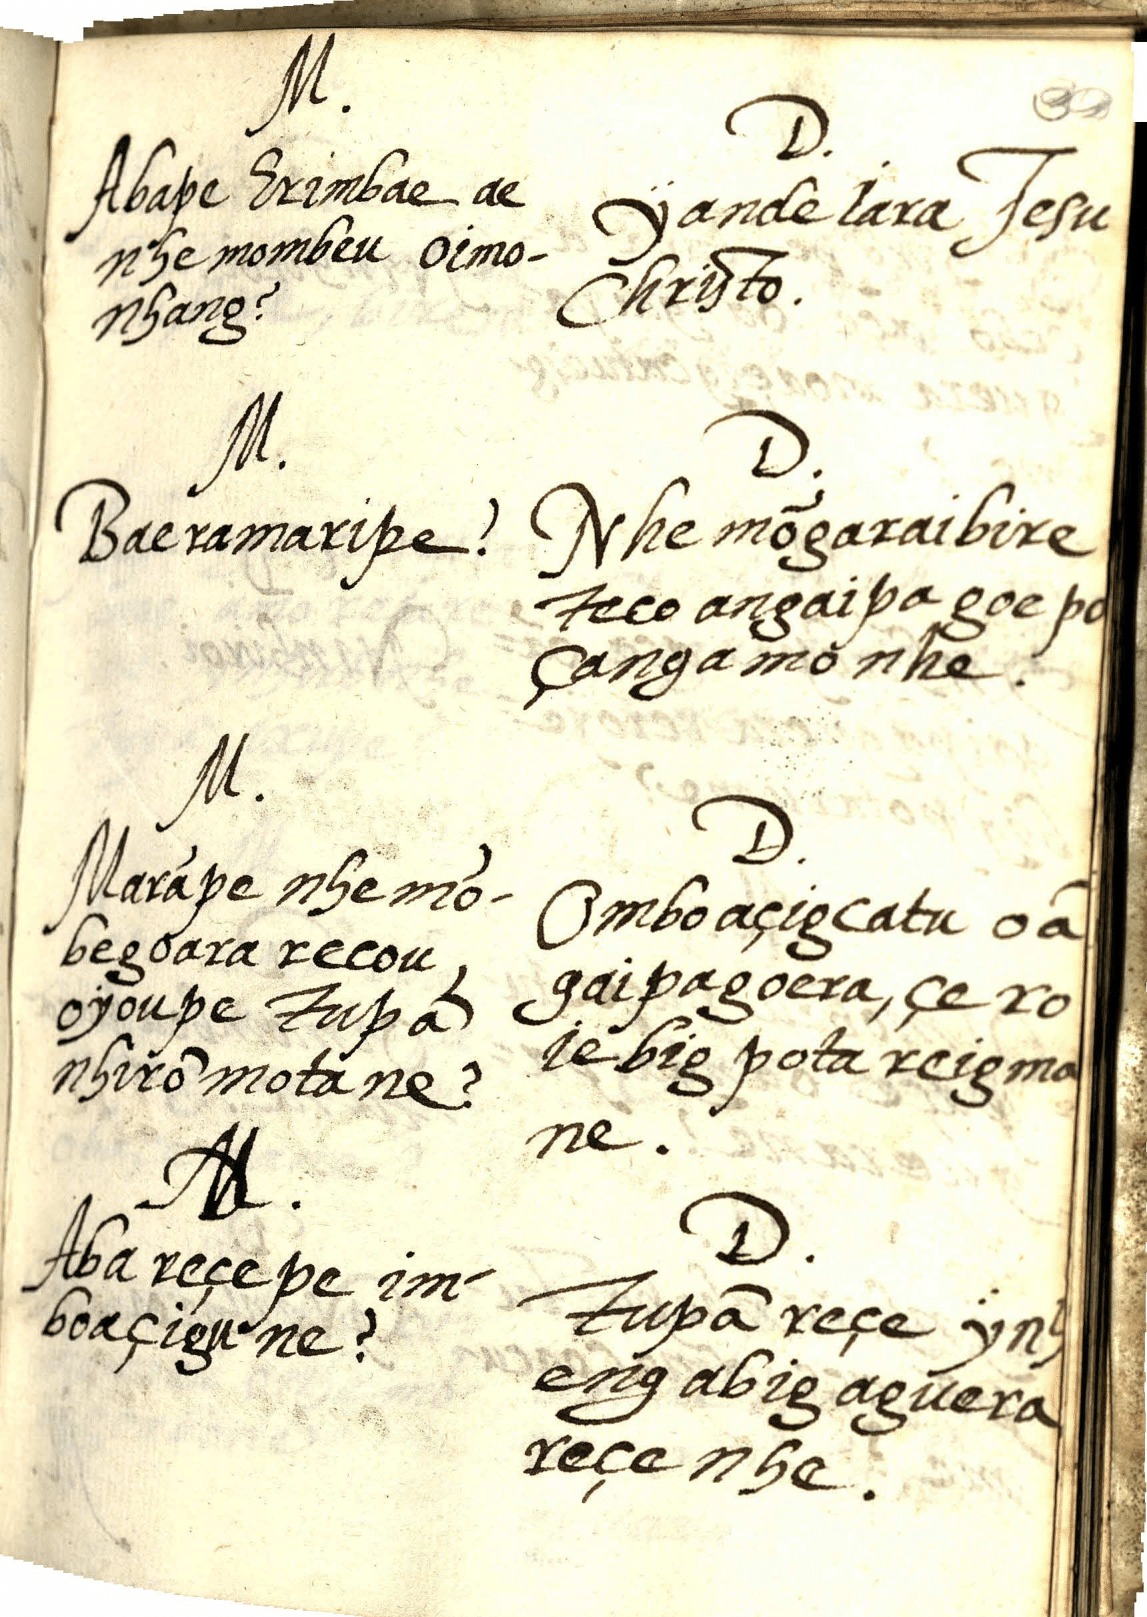 M.
Abape Erimbae ae
nhe mombeu oimo-
nhang?
D.
ÿande Iara Jesu
Christo.
M.
Baeramaripe?
D.
Nhe mõgaraibire
teco angaipa goe po
çangamo nhe.
M.
Marãpe nhe mõ-
begoara recou,
oÿoupe tupã
nhirõ motane?
D.
Omboaçigcatu oã
gaipagoera, çe ro
ie big potareigma
ne.
M.
Aba reçepe im-
boaçigu ne?
D.
Tupã reçe ÿnh
eng abig aguera
reçe nhe.